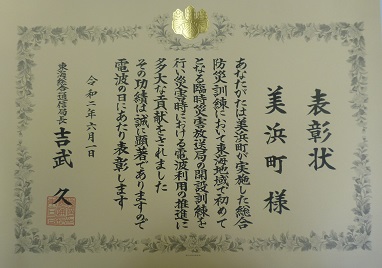 表彰状
美浜町 様
あなたがたは美浜町が実施した総合
防災訓練において東海地域で初めて
となる臨時災害放送局の開設訓練を
行い災害時における電波利用の推進に
多大な貢献をされました
その功績は誠に顕著でありますので
電波の日にあたり表彰します
令和二年六月一日
東海総合通信局長 吉武 久